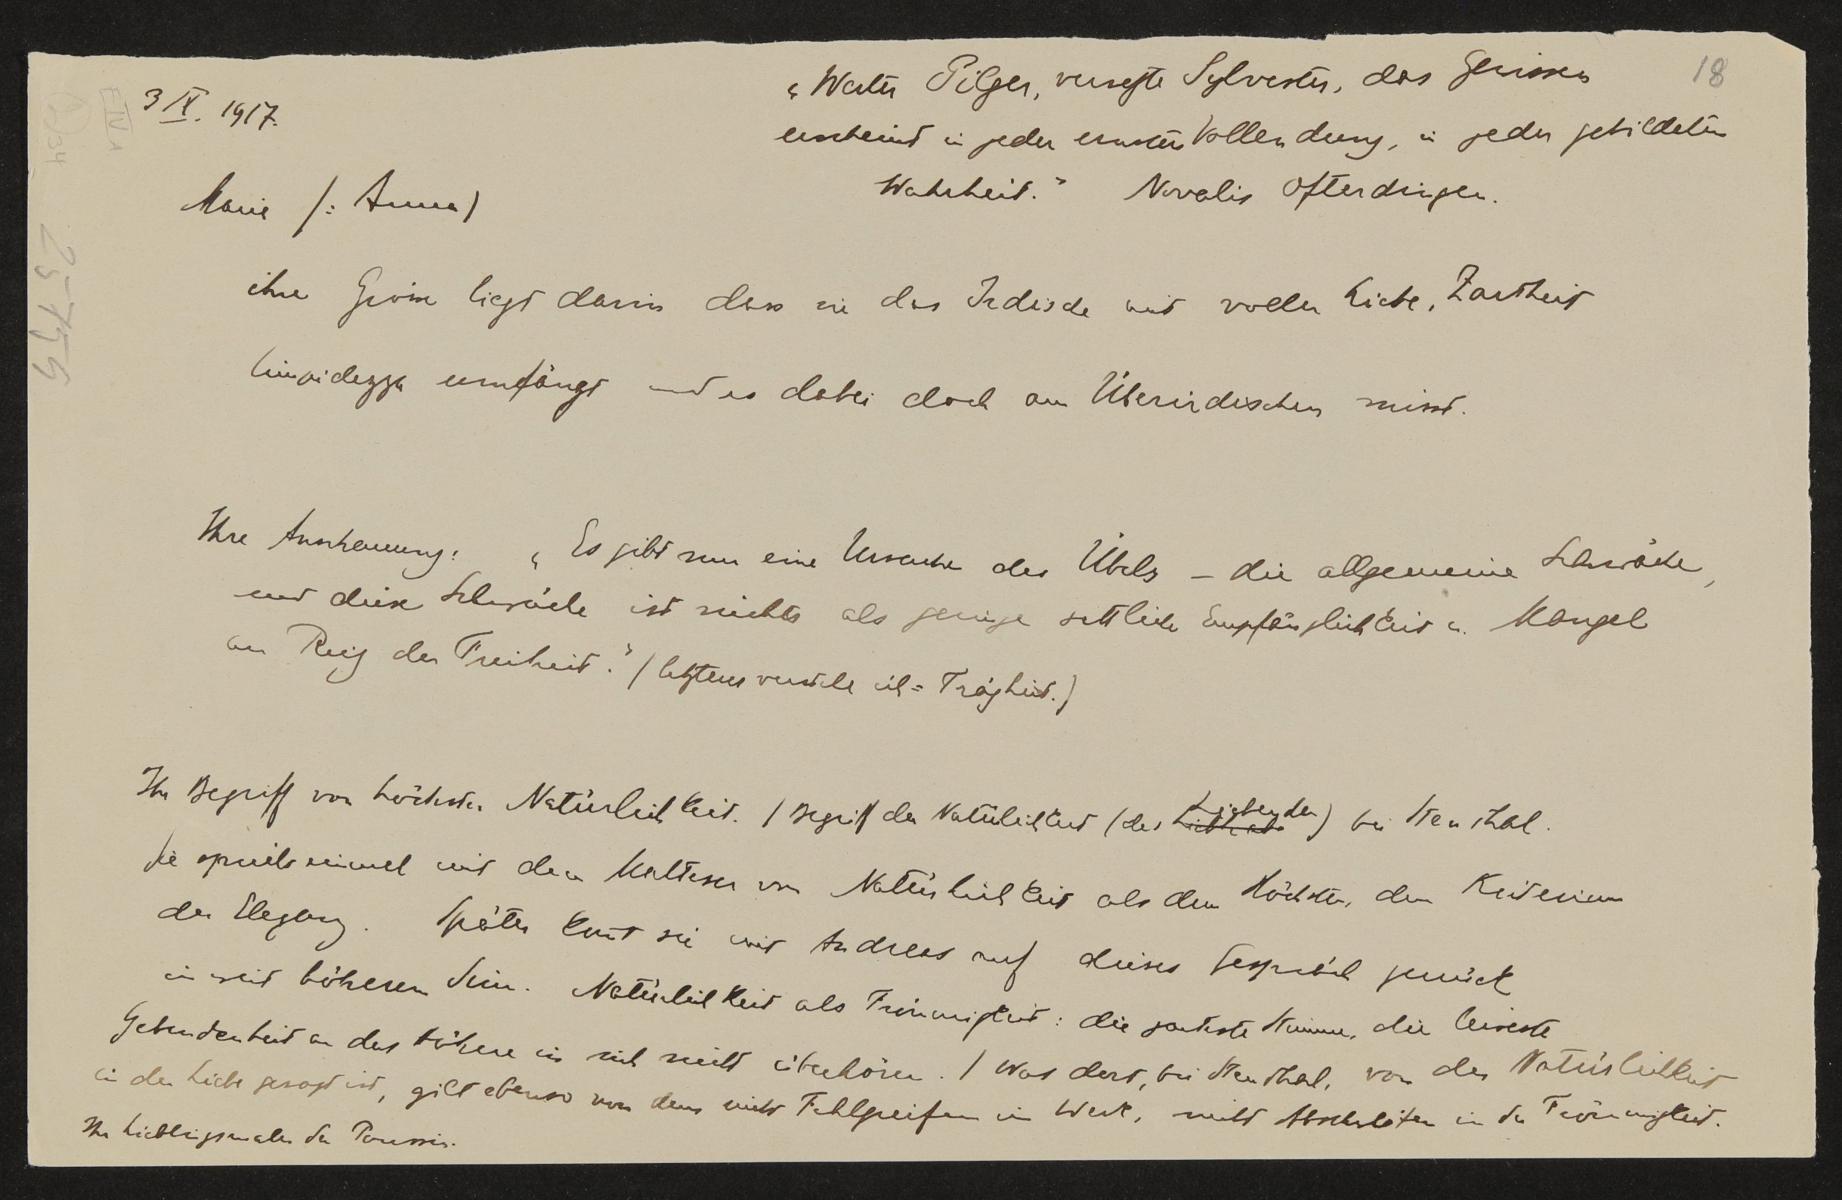 3 IX. 1917.
18
„Werter Pilger, versezte Sylvester, das Gewissen
erscheint in jeder ernsten Vollendung, in jeder gebildeten
Wahrheit." Novalis Ofterdingen.
Marie (: Anna)
ihre Grösse liegt darin dass sie das Irdische mit voller Liebe, Zartheit
limpidezza umfängt und es dabei doch am Überirdischen misst.
Ihre Anschauung: „Es gibt nur eine Ursache des Übels – die allgemeine Schwäche,
und diese Schwäche ist nichts als geringe sittliche Empfänglichkeit u. Mangel
an Reiz der Freiheit." (letzteres verstehe ich = Trägheit.)
Ihr Begriff von höchster Natürlichkeit. (Begriff der Natürlichkeit (des Liebenden) bei Stendhal.
Sie spricht einmal mit dem Malteser von Natürlichkeit als dem Höchsten, dem Kriterium
der Eleganz. Später komt sie mit Andreas auf dieses Gespräch zurück
in weit höherem Sinn. Natürlichkeit als Frömmigkeit: die zarteste Stimme, die leiseste
Gebundenheit an das Höhere in sich nicht überhören. / Was dort, bei Stendhal, von der Natürlichkeit
in der Liebe gesagt ist, gilt ebenso von dem nicht Fehlgreifen im Werk, nicht Abschweifen in der Frömmigkeit.
Ihr Lieblingsmaler der Poussin.
E IV A
25799